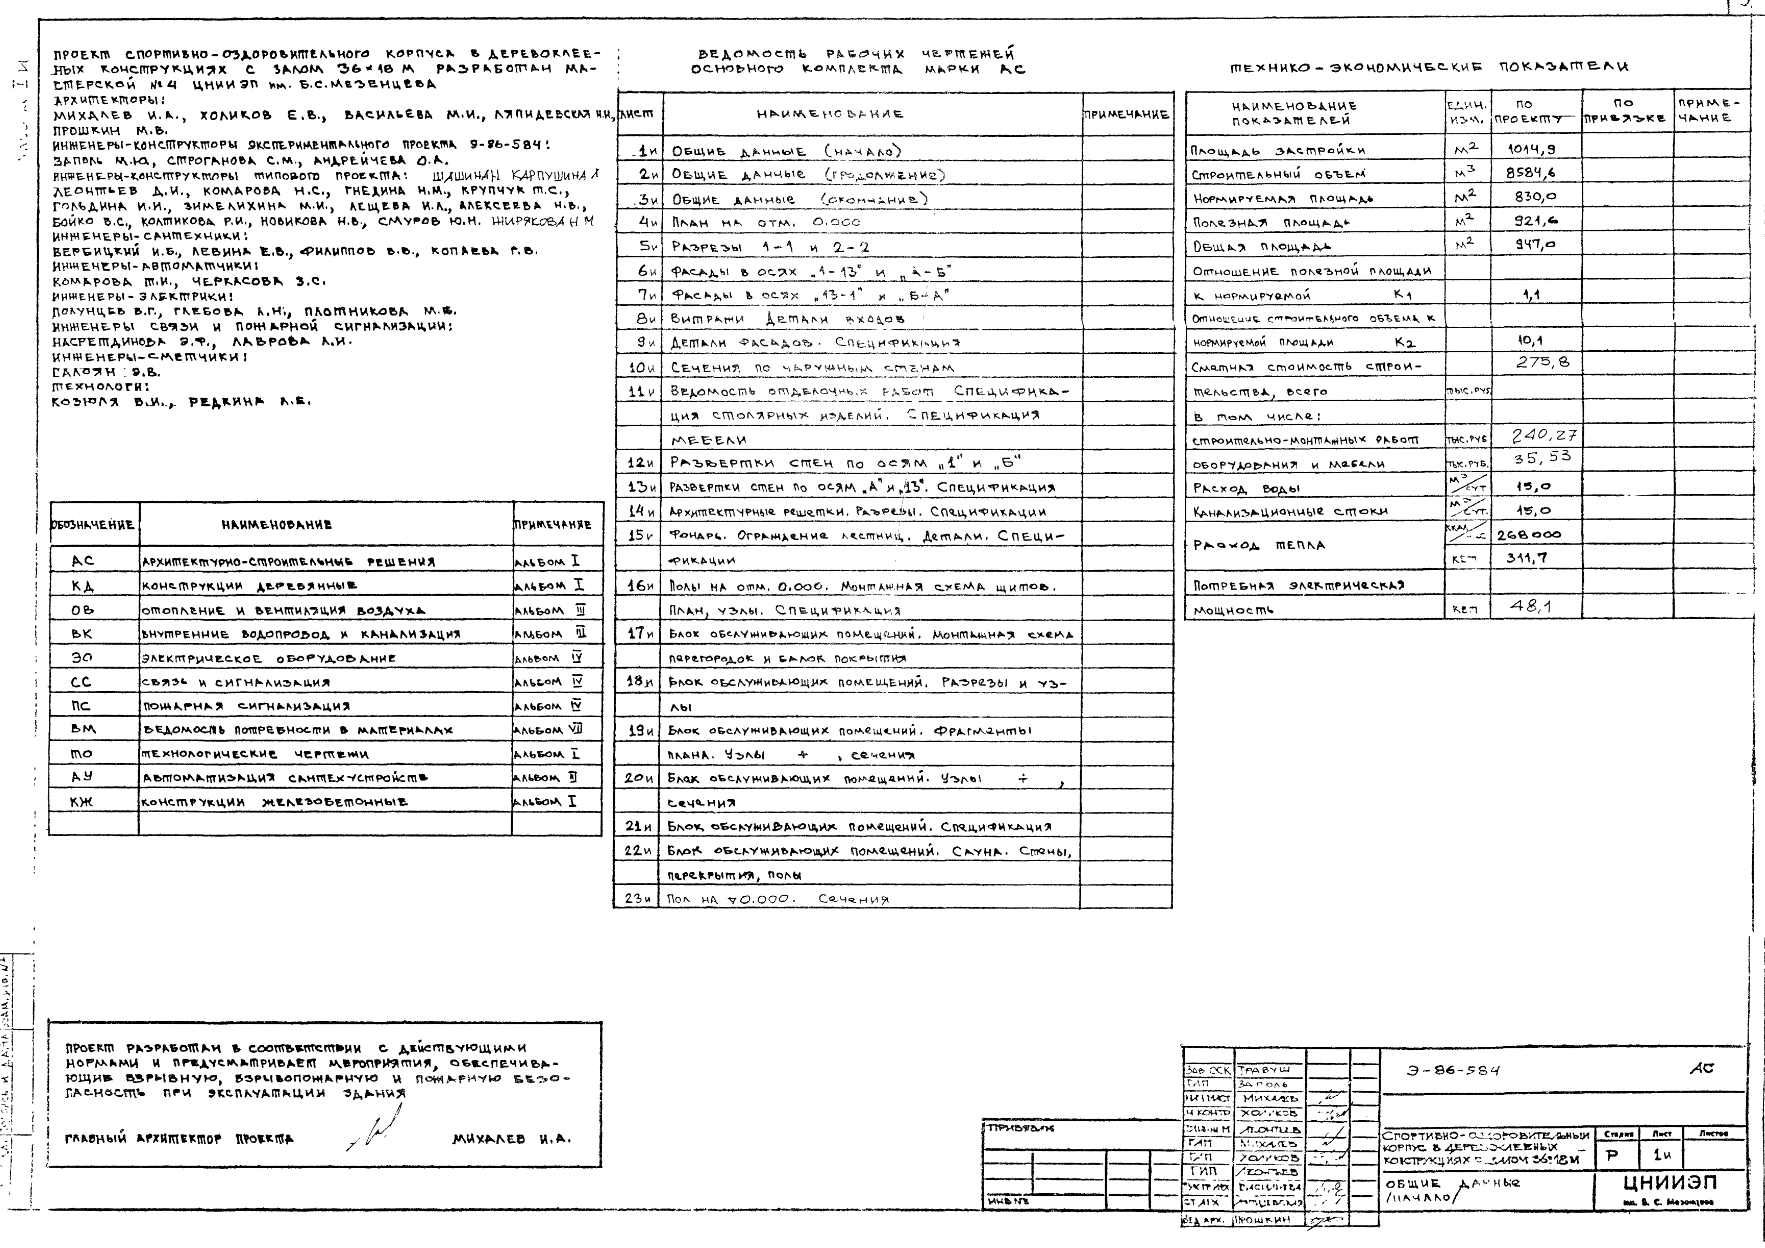 ПРОЕКТ СПОРТИВНО-ОЗДОРОВИТЕЛЬНОГО КОРПУСА В ДЕРЕВОКЛЕЕ-
НЫХ КОНСТРУКЦИЯХ С ЗАЛОМ 36×18 М РАЗРАБОТАН МА-
СТЕРСКОЙ №4 ЦНИИЭП им. Б.С.МЕЗЕНЦЕВА
АРХИТЕКТОРЫ:
МИХАЛЕВ И.А., ХОЛИКОВ Е.В., ВАСИЛЬЕВА М.И., ЛЯПИДЕВСКАЯ Н.И.,
ПРОШКИН М.В.
ИНЖЕНЕРЫ-КОНСТРУКТОРЫ ЭКСПЕРИМЕНТАЛЬНОГО ПРОЕКТА Э-86-584:
ЗАПОЛЬ М.Ю., СТРОГАНОВА С.М., АНДРЕЙЧЕВА О.А.
ИНЖЕНЕРЫ-КОНСТРУКТОРЫ ТИПОВОГО ПРОЕКТА: ШАШИНАН КАРПУШИНА Л
ЛЕОНТЬЕВ Д.И., КОМАРОВА Н.С., ГНЕДИНА Н.М., КРУПЧУК Т.С.,
ГОЛЬДИНА И.И., ЗИМЕЛИХИНА М.И., ЛЕЩЕВА И.Л., АЛЕКСЕЕВА Н.В.,
БОЙКО В.С., КОЛТИКОВА Р.И., НОВИКОВА Н.В., СМУРОВ Ю.Н. ШИРЯКОВА Н М
ИНЖЕНЕРЫ-САНТЕХНИКИ:
ВЕРБИЦКИЙ И.Б., ЛЕВИНА Е.В., ФИЛИППОВ В.В., КОПАЕВА Г.В.
ИНЖЕНЕРЫ-АВТОМАТЧИКИ:
КОМАРОВА Т.И., ЧЕРКАСОВА З.С.
ИНЖЕНЕРЫ-ЭЛЕКТРИКИ:
ПОЛУНЦЕВ В.Г., ГЛЕБОВА Л.Н., ПЛОТНИКОВА М.В.
ИНЖЕНЕРЫ СВЯЗИ И ПОЖАРНОЙ СИГНАЛИЗАЦИИ:
НАСРЕТДИНОВА Э.Ф., ЛАВРОВА Л.И.
ИНЖЕНЕРЫ-СМЕТЧИКИ:
ГАЛОЯН Э.В.
ТЕХНОЛОГИ:
КОЗЮЛЯ В.И., РЕДКИНА Л.Е.
ОБОЗНАЧЕНИЕ НАИМЕНОВАНИЕ ПРИМЕЧАНИЕ
АС АРХИТЕКТУРНО-СТРОИТЕЛЬНЫЕ РЕШЕНИЯ АЛЬБОМ I
КД КОНСТРУКЦИИ ДЕРЕВЯННЫЕ АЛЬБОМ I
ОВ ОТОПЛЕНИЕ И ВЕНТИЛЯЦИЯ ВОЗДУХА АЛЬБОМ III
ВК ВНУТРЕННИЕ ВОДОПРОВОД И КАНАЛИЗАЦИЯ АЛЬБОМ III
ЭО ЭЛЕКТРИЧЕСКОЕ ОБОРУДОВАНИЕ АЛЬБОМ IV
СС СВЯЗЬ И СИГНАЛИЗАЦИЯ АЛЬБОМ IV
ПС ПОЖАРНАЯ СИГНАЛИЗАЦИЯ АЛЬБОМ IV
ВМ ВЕДОМОСТЬ ПОТРЕБНОСТИ В МАТЕРИАЛАХ АЛЬБОМ VII
ТО ТЕХНОЛОГИЧЕСКИЕ ЧЕРТЕЖИ АЛЬБОМ I
АУ АВТОМАТИЗАЦИЯ САНТЕХУСТРОЙСТВ АЛЬБОМ
КЖ КОНСТРУКЦИИ ЖЕЛЕЗОБЕТОННЫЕ АЛЬБОМ I
ПРОЕКТ РАЗРАБОТАН В СООТВЕТСТВИИ С ДЕЙСТВУЮЩИМИ
НОРМАМИ И ПРЕДУСМАТРИВАЕТ МЕРОПРИЯТИЯ, ОБЕСПЕЧИВА-
ЮЩИЕ ВЗРЫВНУЮ, ВЗРЫВОПОЖАРНУЮ И ПОЖАРНУЮ БЕЗО-
ПАСНОСТЬ ПРИ ЭКСПЛУАТАЦИИ ЗДАНИЯ
ГЛАВНЫЙ АРХИТЕКТОР ПРОЕКТА МИХАЛЕВ И.А.
ВЕДОМОСТЬ РАБОЧИХ ЧЕРТЕЖЕЙ
ОСНОВНОГО КОМПЛЕКТА МАРКИ АС
ЛИСТ НАИМЕНОВАНИЕ ПРИМЕЧАНИЕ
1и ОБЩИЕ ДАННЫЕ (НАЧАЛО)
2и ОБЩИЕ ДАННЫЕ (ПРОДОЛЖЕНИЕ)
3и ОБЩИЕ ДАННЫЕ (ОКОНЧАНИЕ)
4и ПЛАН НА ОТМ. 0.000
5и РАЗРЕЗЫ 1-1 И 2-2
6и ФАСАДЫ В ОСЯХ „1-13" И „А-Б"
7и ФАСАДЫ В ОСЯХ „13-1" И „Б-А"
8и ВИТРАЖИ ДЕТАЛИ ВХОДОВ
9и ДЕТАЛИ ФАСАДОВ. СПЕЦИФИКАЦИЯ
10и СЕЧЕНИЯ ПО НАРУЖНЫМ СТЕНАМ
11и ВЕДОМОСТЬ ОТДЕЛОЧНЫХ РАБОТ СПЕЦИФИКА-
ЦИЯ СТОЛЯРНЫХ ИЗДЕЛИЙ. СПЕЦИФИКАЦИЯ
МЕБЕЛИ
12и РАЗВЕРТКИ СТЕН ПО ОСЯМ „1" И „Б"
13и РАЗВЕРТКИ СТЕН ПО ОСЯМ „А" И „13". СПЕЦИФИКАЦИЯ
14и АРХИТЕКТУРНЫЕ РЕШЕТКИ. РАЗРЕЗЫ. СПЕЦИФИКАЦИИ
15и ФОНАРЬ. ОГРАЖДЕНИЕ ЛЕСТНИЦ. ДЕТАЛИ. СПЕЦИ-
ФИКАЦИИ
16и ПОЛЫ НА ОТМ. 0.000. МОНТАЖНАЯ СХЕМА ЩИТОВ.
ПЛАН, УЗЛЫ. СПЕЦИФИКАЦИЯ
17и БЛОК ОБСЛУЖИВАЮЩИХ ПОМЕЩЕНИЙ. МОНТАЖНАЯ СХЕМА
ПЕРЕГОРОДОК И БАЛОК ПОКРЫТИЯ
18и БЛОК ОБСЛУЖИВАЮЩИХ ПОМЕЩЕНИЙ. РАЗРЕЗЫ И УЗ-
ЛЫ
19и БЛОК ОБСЛУЖИВАЮЩИХ ПОМЕЩЕНИЙ. ФРАГМЕНТЫ
ПЛАНА. УЗЛЫ ÷ , СЕЧЕНИЯ
20и БЛОК ОБСЛУЖИВАЮЩИХ ПОМЕЩЕНИЙ. УЗЛЫ ÷ ,
СЕЧЕНИЯ
21и БЛОК ОБСЛУЖИВАЮЩИХ ПОМЕЩЕНИЙ. СПЕЦИФИКАЦИЯ
22и БЛОК ОБСЛУЖИВАЮЩИХ ПОМЕЩЕНИЙ. САУНА. СТЕНЫ,
ПЕРЕКРЫТИЯ, ПОЛЫ
23и ПОЛ НА ▽0.000. СЕЧЕНИЯ
ТЕХНИКО-ЭКОНОМИЧЕСКИЕ ПОКАЗАТЕЛИ
НАИМЕНОВАНИЕ ПОКАЗАТЕЛЕЙ ЕДИН. ИЗМ. ПО ПРОЕКТУ ПО ПРИВЯЗКЕ ПРИМЕ-ЧАНИЕ
ПЛОЩАДЬ ЗАСТРОЙКИ М2 1014,9
СТРОИТЕЛЬНЫЙ ОБЪЕМ М3 8584,6
НОРМИРУЕМАЯ ПЛОЩАДЬ М2 830,0
ПОЛЕЗНАЯ ПЛОЩАДЬ М2 921,6
ОБЩАЯ ПЛОЩАДЬ М2 947,0
ОТНОШЕНИЕ ПОЛЕЗНОЙ ПЛОЩАДИ
К НОРМИРУЕМОЙ К1 1,1
ОТНОШЕНИЕ СТРОИТЕЛЬНОГО ОБЪЕМА К
НОРМИРУЕМОЙ ПЛОЩАДИ К2 10,1
СМЕТНАЯ СТОИМОСТЬ СТРОИ- 275,8
ТЕЛЬСТВА, ВСЕГО ТЫС.РУБ
В ТОМ ЧИСЛЕ:
СТРОИТЕЛЬНО-МОНТАЖНЫХ РАБОТ ТЫС.РУБ 240,27
ОБОРУДОВАНИЯ И МЕБЕЛИ ТЫС.РУБ. 35,53
РАСХОД ВОДЫ М3/СУТ 15,0
КАНАЛИЗАЦИОННЫЕ СТОКИ М3/СУТ. 15,0
РАСХОД ТЕПЛА 268000
КВТ 311,7
ПОТРЕБНАЯ ЭЛЕКТРИЧЕСКАЯ
МОЩНОСТЬ КВТ 48,1
ПРИВЯЗАН
ИНВ №
ЗАВ ОСК ТРАВУШ
ГИП ЗАПОЛЬ
МИХАЛЕВ
Н КОНТР ХОЛИКОВ
ЛЕОНТЬЕВ
ГАП МИХАЛЕВ
ГАП ХОЛИКОВ
ГИП ЛЕОНТЬЕВ
ВАСИЛЬЕВА
СТ.АРХ
ВЕД АРХ. ПРОШКИН
Э-86-584 АС
СПОРТИВНО-ОЗДОРОВИТЕЛЬНЫЙ
КОРПУС В ДЕРЕВОКЛЕЕНЫХ
КОНСТРУКЦИЯХ С ЗАЛОМ 36×18 М
Стадия Лист Листов
Р 1и
ОБЩИЕ ДАННЫЕ
/НАЧАЛО/
ЦНИИЭП
им. Б. С. Мезенцева